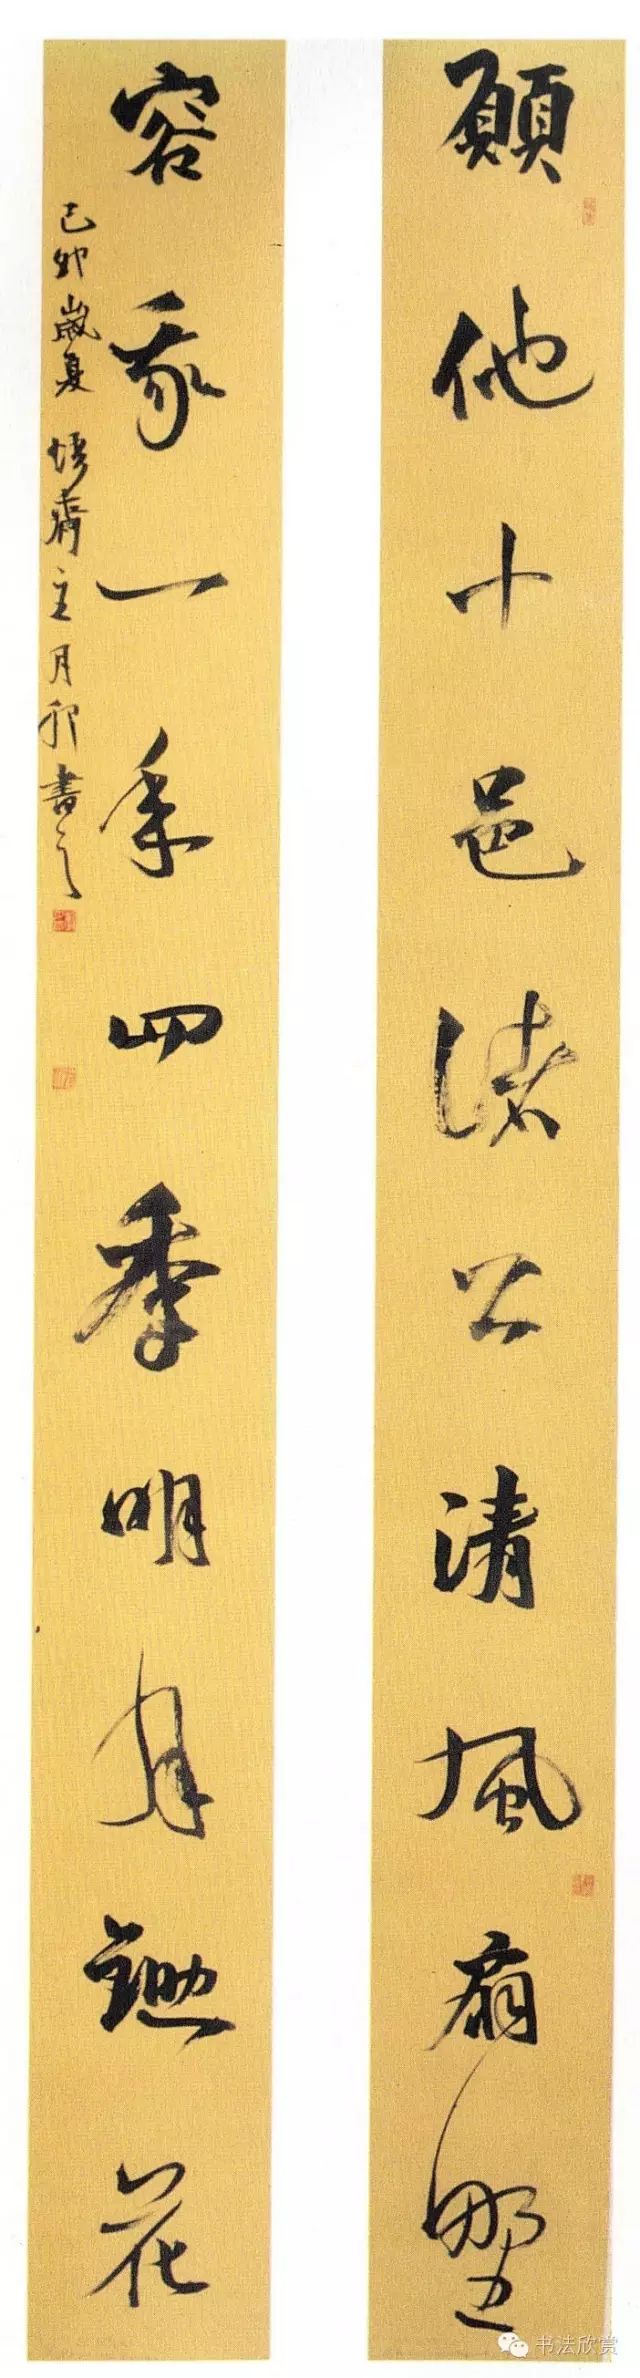 願他十邑諸公清風扇野
容我一年四季明月鋤花
己卯歲夏 悟齋主月邨書之
书法欣赏